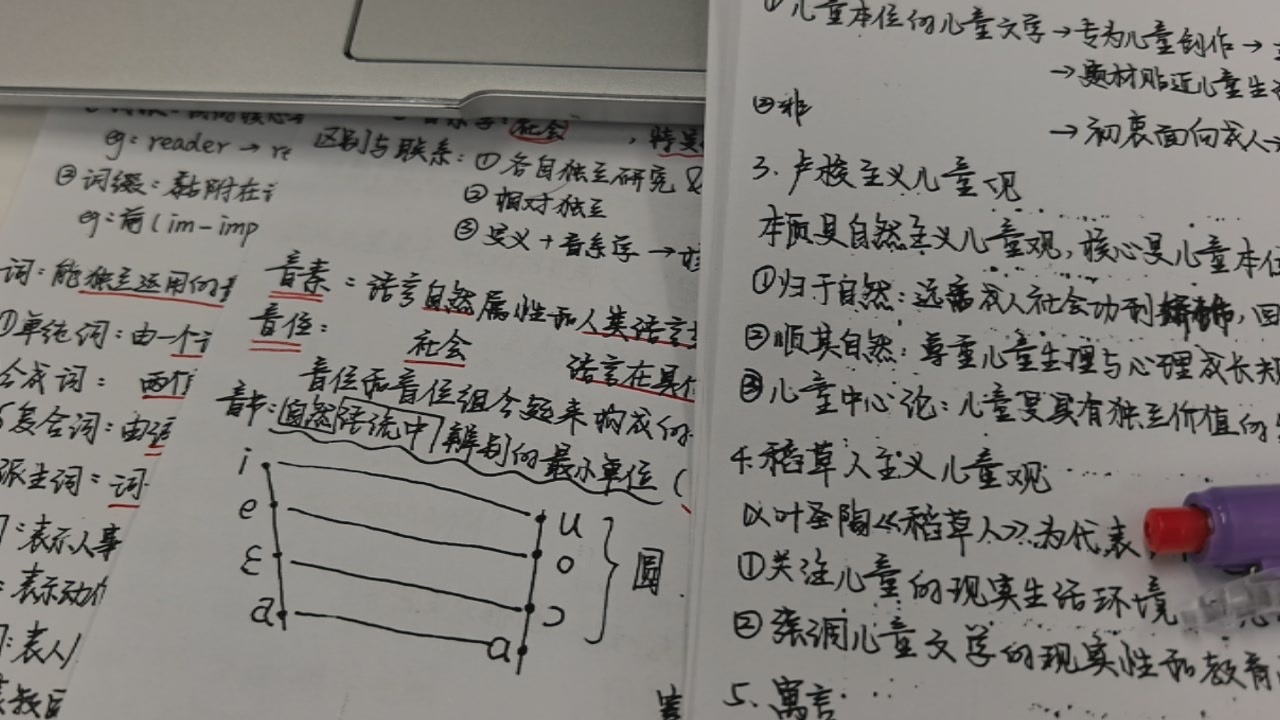 eg: reader →
② 词缀: 黏附在
eg: 前(im-imp
词: 能独立运用的
①单纯词: 由一个
合成词: 两个
复合词: 由
派生词: 词
表示人事
表示动作
表人
社会
区别与联系: ① 各自独立研究
② 相对独立
③ 定义+音系学 →
音素: 语言自然属性和人类语言
音位: 社会 语言在具体
音位和音位组合起来构成的
音节: 自然语流中辨别的最小单位(
i
u
e
o
ε
ɔ
a
ɑ
圆
①儿童本位的儿童文学→专为儿童创作→
→题材贴近儿童生活
②非
→初衷面向成人→
3. 卢梭主义儿童观
本质是自然主义儿童观, 核心是儿童本位
①归于自然: 远离成人社会功利, 回
②顺其自然: 尊重儿童生理与心理成长规
③儿童中心论: 儿童是具有独立价值的
4. 稻草人主义儿童观
以叶圣陶《稻草人》为代表
①关注儿童的现实生活环境
②强调儿童文学的现实性和教育
5. 寓言